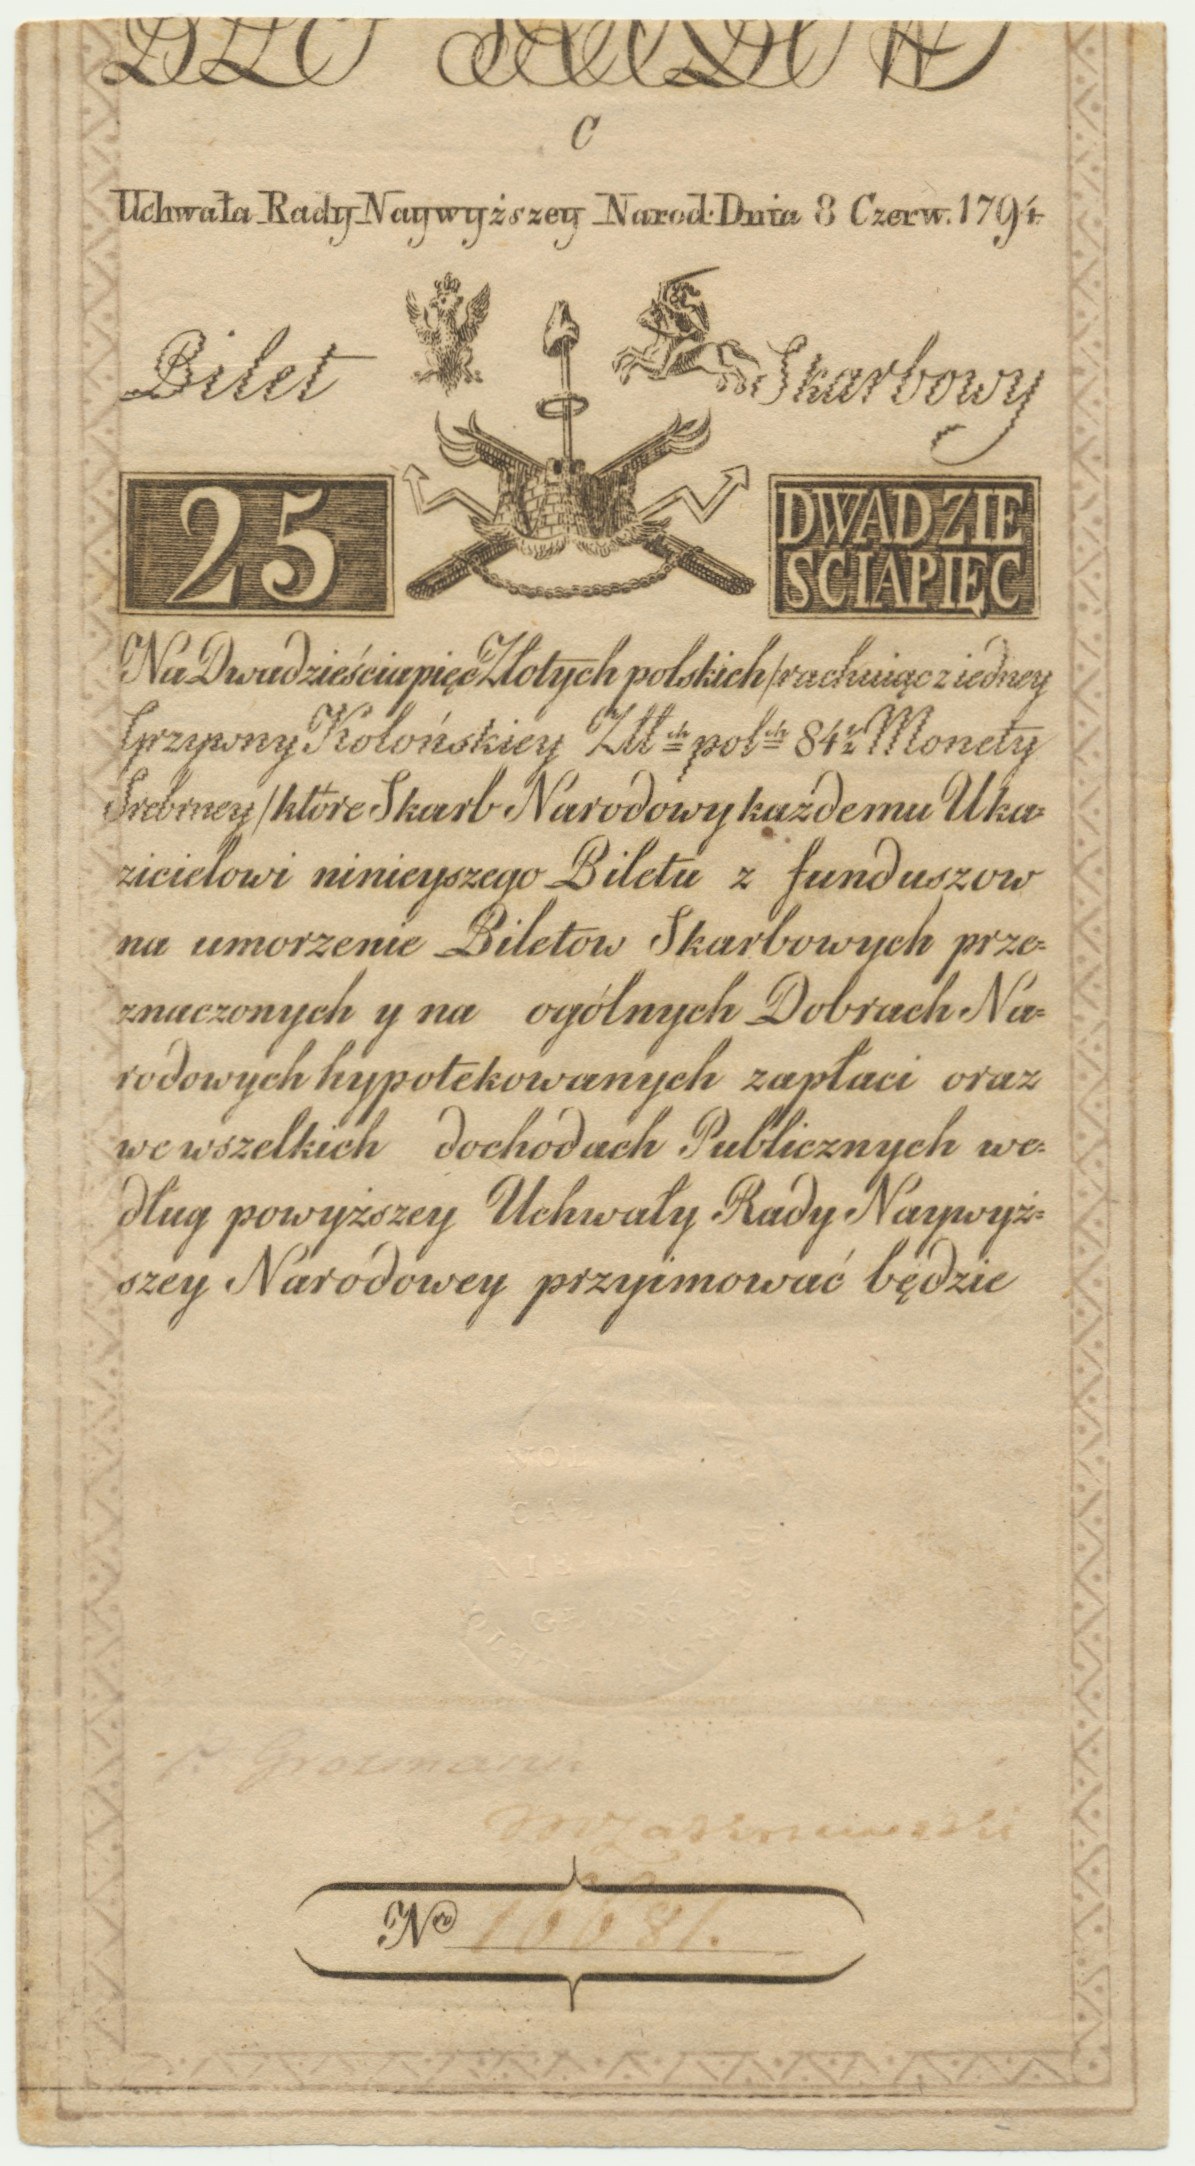 C
Uchwała Rady Naywyższey Narod: Dnia 8 Czerw. 1794.
Bilet Skarbowy
25
DWADZIE
SCIAPIĘC
Na Dwadzieściapięć Złotych polskich /rachuiąc z iedney
Grzywny Kolońskiey Złł ch pol ch 84 1/2 Monety
Srebrney/ które Skarb Narodowy każdemu Uka=
zicielowi ninieyszego Biletu z funduszow
na umorzenie Biletow Skarbowych prze=
znaczonych y na ogólnych Dobrach Na=
rodowych hypotekowanych zapłaci oraz
we wszelkich dochodach Publicznych we=
dług powyższey Uchwały Rady Naywyż=
szey Narodowey przyimować będzie
GŁOSC
Nro 16681.